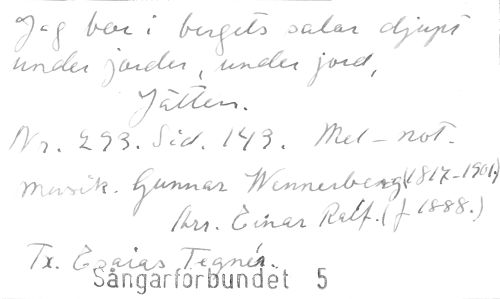 Jag bor i bergets salar djupt
under jorden, under jord,
Jätten.
Nr. 293. Sid. 143. Mel-not.
musik. Gunnar Wennerberg (1817-1901.)
Arr. Einar Ralf. (f 1888.)
Tx. Esaias Tegnér.
Sångarförbundet 5